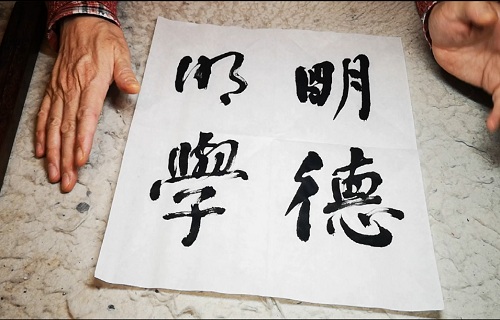 明德
明學